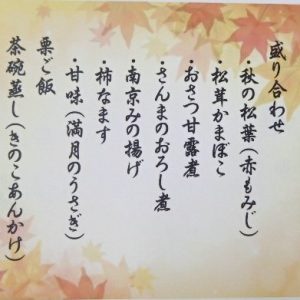 盛り合わせ
・秋の松葉(赤もみじ)
・松茸かまぼこ
・おさつ甘露煮
・さんまのおろし煮
・南京みの揚げ
・柿なます
・甘味(満月のうさぎ)
栗ご飯
茶碗蒸し(きのこあんかけ)